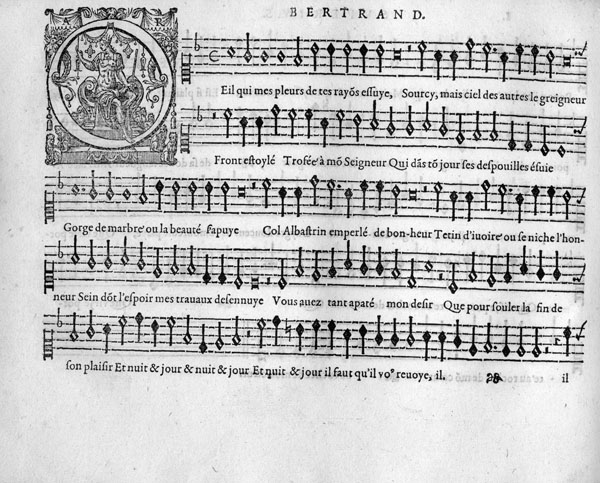 BERTRAND.
A R
O
Eil qui mes pleurs de tes rayõs essuye, Sourcy, mais ciel des autres le greigneur
Front estoylé Trofée à mõ Seigneur Qui dãs tõ jour ses despouilles ésuie
Gorge de marbre ou la beauté s'apuye Col Albastrin emperlé de bon-heur Tetin d'iuoire ou se niche l'hon-
neur Sein dõt l'espoir mes trauaux desennuye Vous auez tant apaté mon desir Que pour souler la fin de
son plaisir Et nuit & jour & nuit & jour Et nuit & jour il faut qu'il vo⁹ reuoye, il. il